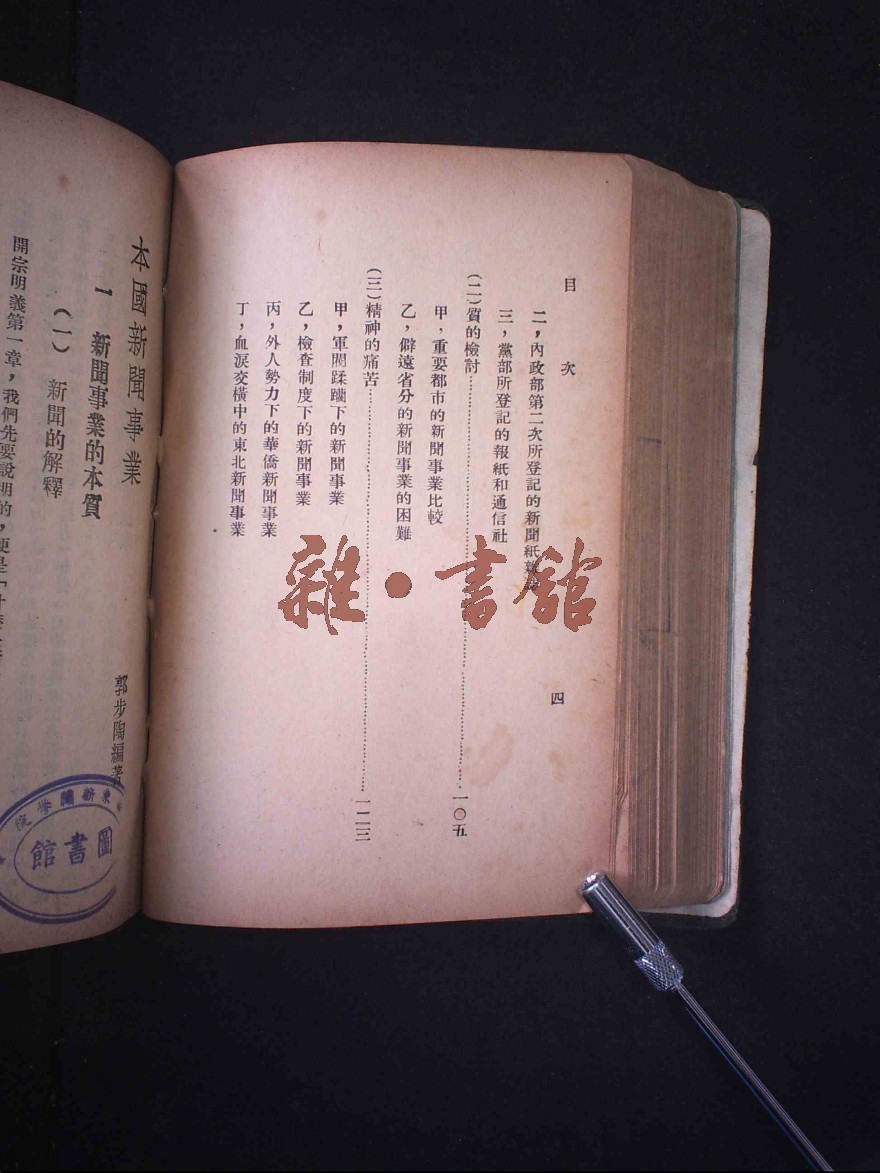 目次
四
二，內政部第二次所登記的新聞紙雜誌
三，黨部所登記的報紙和通信社
（二）質的檢討……一〇五
甲，重要都市的新聞事業比較
乙，僻遠省分的新聞事業的困難
（三）精神的痛苦……一二三
甲，軍閥蹂躪下的新聞事業
乙，檢查制度下的新聞事業
丙，外人勢力下的華僑新聞事業
丁，血淚交橫中的東北新聞事業
雜·書館
本國新聞事業
郭步陶編著
一 新聞事業的本質
（一） 新聞的解釋
開宗明義第一章，我們先要說明的，便是「什
圖書館